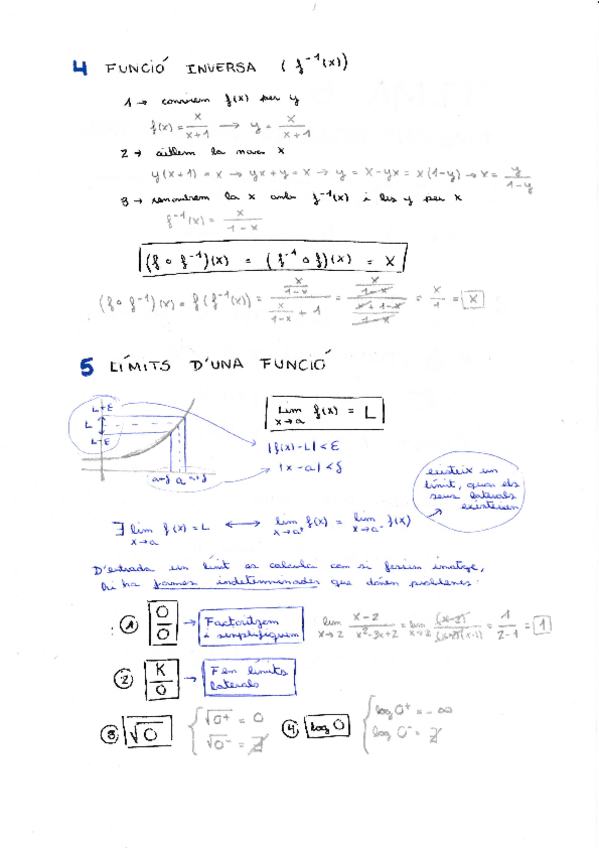 4 FUNCIÓ INVERSA (f⁻¹(x))
1 → canviem f(x) per y
f(x) = x/(x+1) → y = x/(x+1)
2 → aïllem la nova x
y(x+1) = x → yx+y = x → y = x-yx = x(1-y) → x = y/(1-y)
3 → renombrem la x amb f⁻¹(x) i les y per x
f⁻¹(x) = x/(1-x)
(f ∘ f⁻¹)(x) = (f⁻¹ ∘ f)(x) = x
(f ∘ f⁻¹)(x) = f(f⁻¹(x)) = (x/(1-x))/(x/(1-x) + 1) = (x/(1-x))/((x+1-x)/(1-x)) = x/1 = x
5 LÍMITS D'UNA FUNCIÓ
L+ε
L
L-ε
a-δ a a+δ
lim x→a f(x) = L
|f(x)-L| < ε
|x-a| < δ
existeix un
límit, quan els
seus laterals
existeixen
∃ lim x→a f(x) = L ⟷ lim x→a⁺ f(x) = lim x→a⁻ f(x)
D'entrada un límit es calcula com si fessim imatge,
hi ha formes indeterminades que donen problemes:
① 0/0 → Factoritzem
i simplifiquem
lim x→2 (x-2)/(x²-3x+2) = lim x→2 (x-2)/((x-2)(x-1)) = 1/(2-1) = 1
② K/0 → Fem límits
laterals
③ √0 { √0⁺ = 0
√0⁻ = ∄
④ log 0 { log 0⁺ = -∞
log 0⁻ = ∄